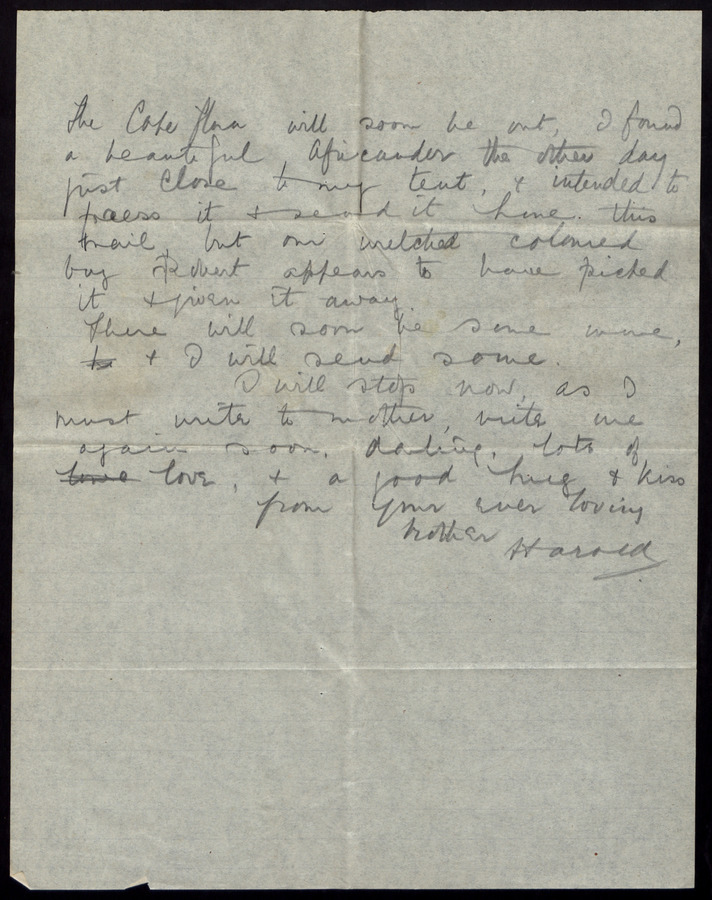 The Cape flora will soon be out, I found
a beautiful Africander the other day
just close to my tent, & intended to
press it & send it home. this
mail, but our wretched coloured
boy Robert appears to have picked
it & given it away.
There will soon be some more,
& I will send some.
I will stop now, as I
must write to mother, write me
again soon, darling, lots of
love love, & a good hug & kiss
from Your ever loving
brother Harold